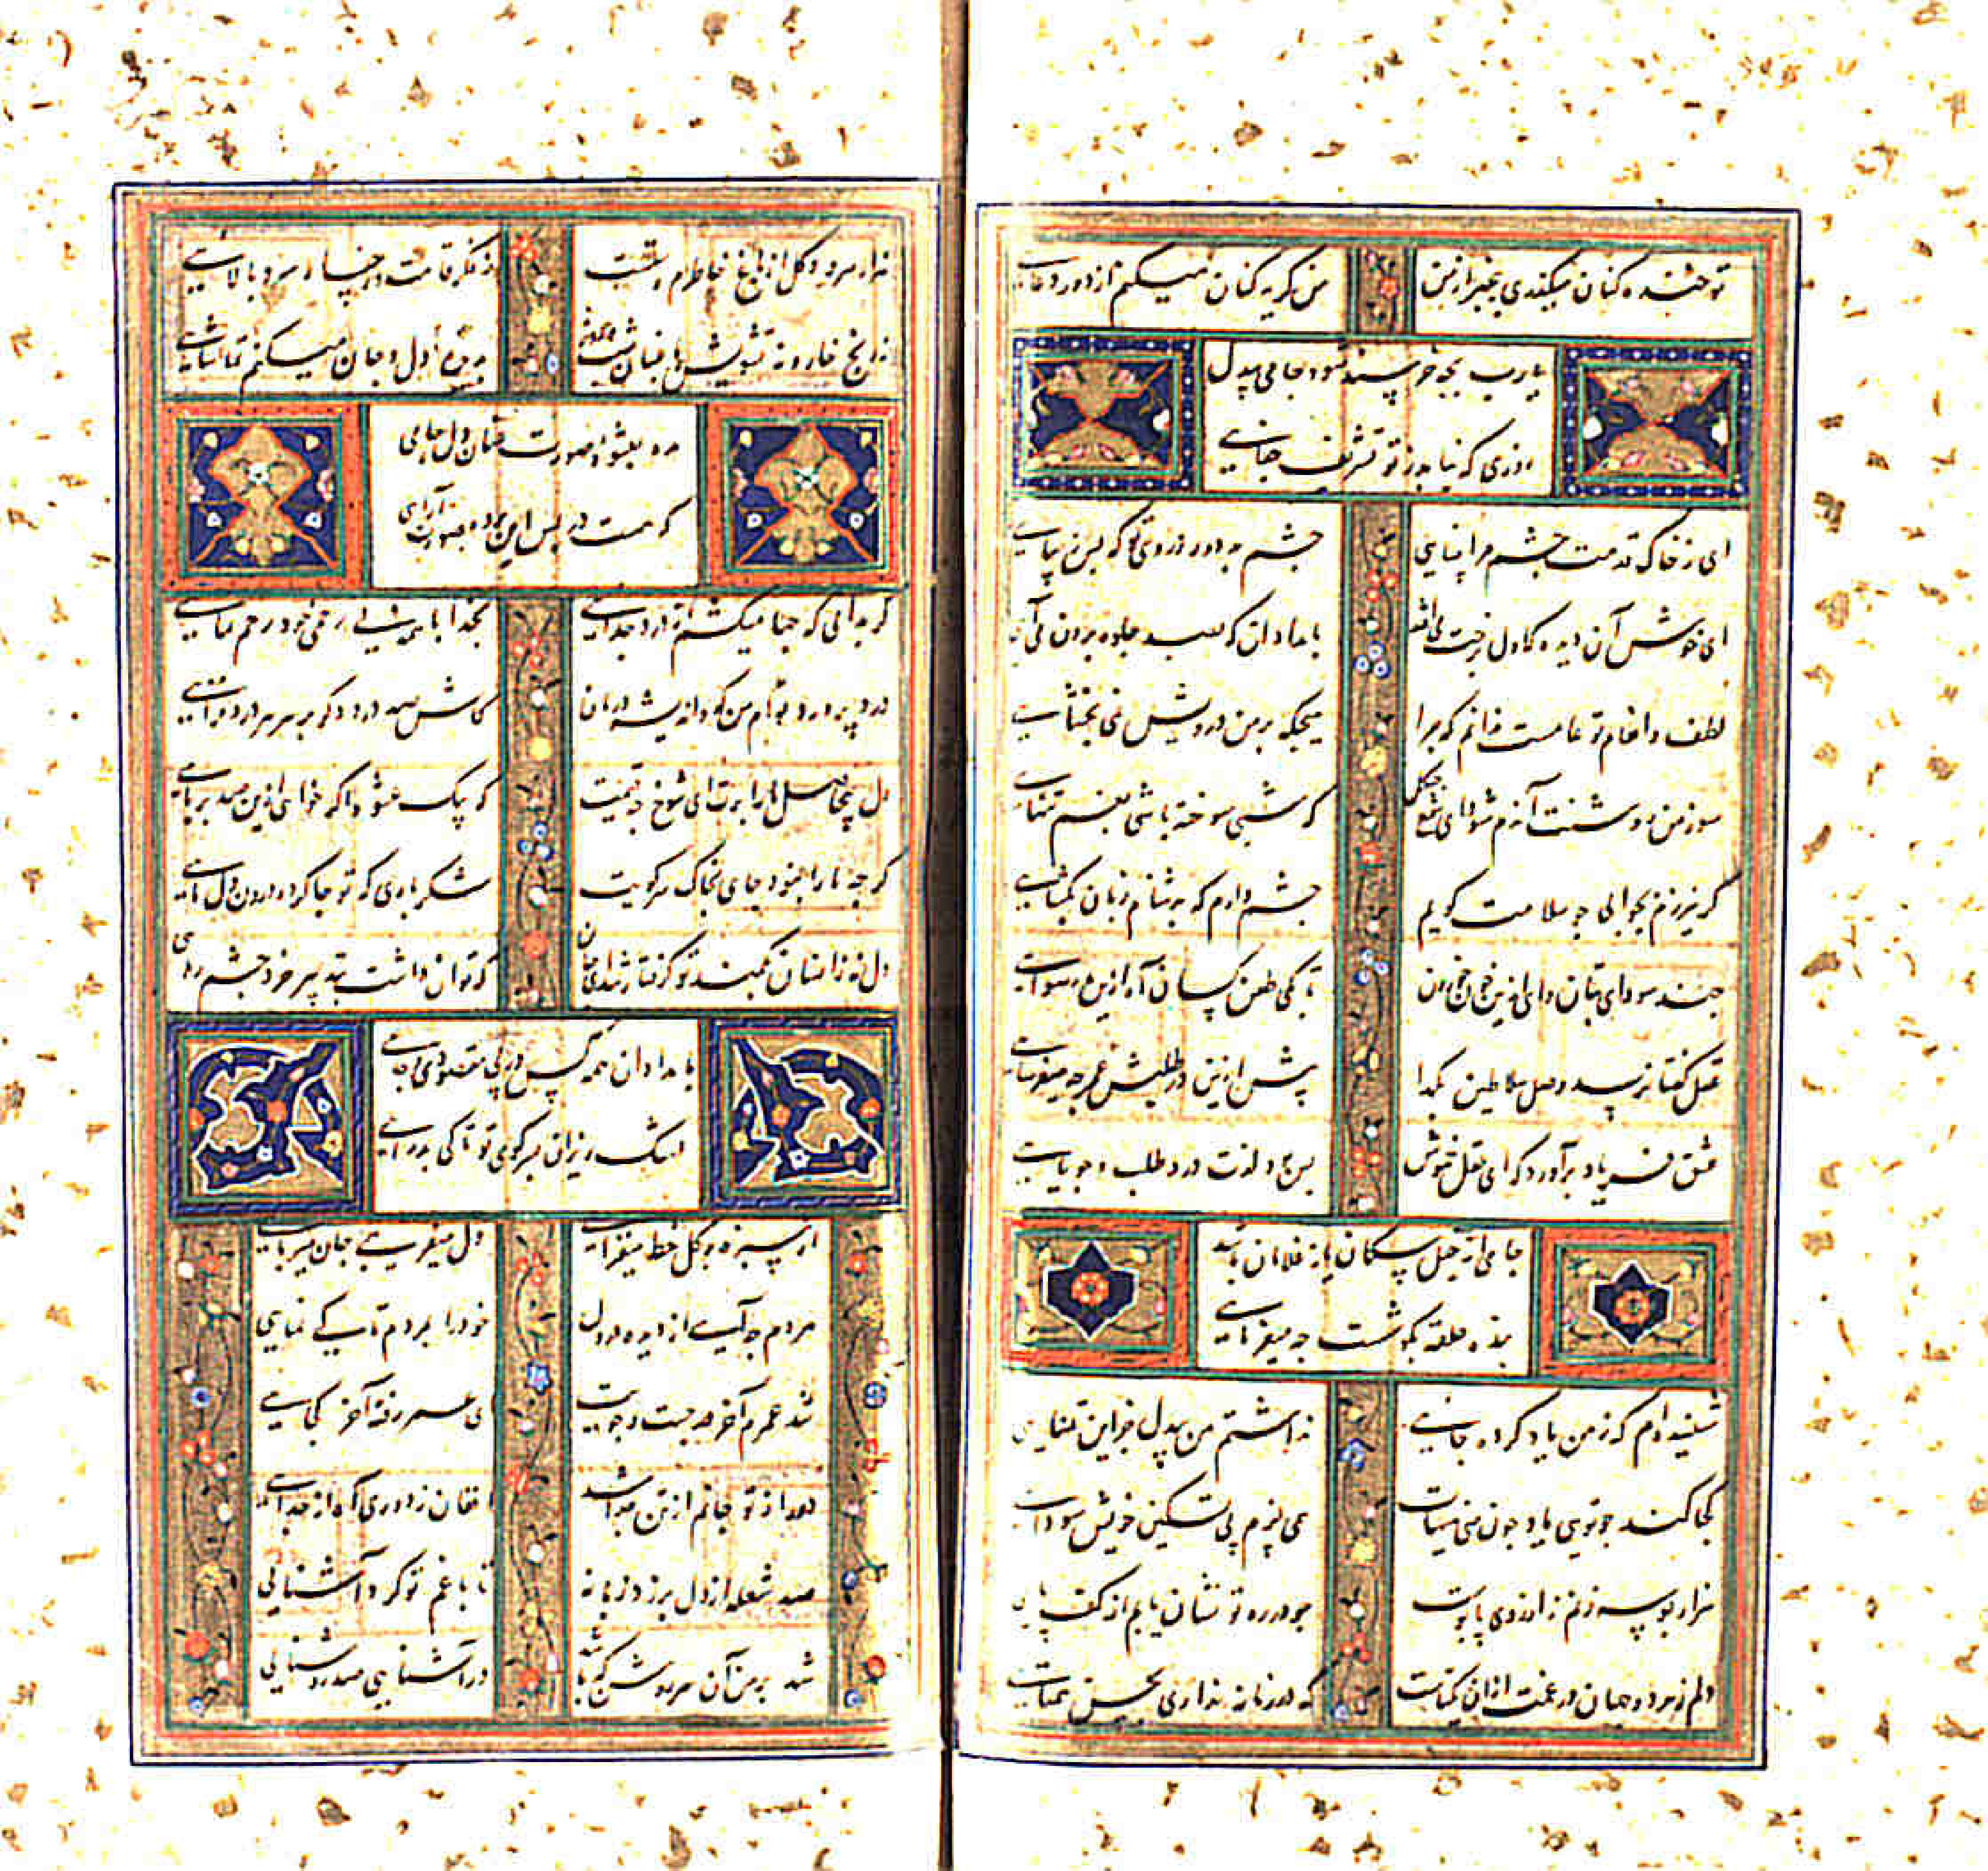 تو خنده کنان میگذری بیخبر از من
من گریه کنان میکنم از دور دعایی
یارب بچه خرسند شود جامی بیدل
روزی که نیابد ز تو تشریف جفایی
ای ز خاک قدمت چشم مرا بینایی
چشم بد دور ز روی تو که بس زیبایی
ای خوش آن دیده که اول برخت می‌افتد
بامدادان که بصد جلوه برون می‌آیی
لطف و انعام تو عامست ندانم که چرا
هیچگه بر من درویش نمی‌بخشایی
سوز من روشنت آندم شود ای شمع چگل
که شبی سوخته باشی بغم تنهایی
گر نیرزم بجوابی چو سلامت گویم
چشم دارم که بدشنام زبان بگشایی
چند سودای بتان وای ازین خون خوردن
تا بکی طعن کسان آه ازین رسوایی
عقل گفتا نرسد وصل سلاطین بگدا
بیش ازین در طلبش عمر چه میفرسایی
عشق فریاد برآورد که ای عقل خموش
بس بود لذت درد طلب و جویایی
جامی از خیل سگان یا ز غلامان باشد
بنده حلقه بگوشست چه میفرمایی
شنیده‌ام که ز من یاد کرده جایی
نداشتم من بیدل جز این تمنایی
کجا کند چو تویی یاد چون منی هیهات
همی پزم پی تسکین خویش سودایی
هزار بوسه زنم ز آرزوی پابوست
چو در ره تو نشان یابم از کف پایی
دلم ز هر دو جهان در غمت ازان یکتاست
که در زمانه نداری بحسن همتایی
هزار سرو و گل از باغ خاطرم رستست
ز فکر قامت و رخسار سرو بالایی
نه رنج خار و نه تشویش باغبان شب و روز
به باغ دل و جان میکنم تماشایی
مده بعشوه صورت عنان دل جامی
که هست در پس این پرده صورت آرایی
گر بدانی که چها میکشم از درد جدایی
بخدا با همه بی رحمی خود رحم نمایی
درد بر درد بود از من کو اندیشه درمان
کاش صد درد دگر بر سر درد فزایی
دل بیحاصل ما را برت ای شوخ چه قیمت
که بیک عشوه اگر خواهی ازین صد بربایی
گرچه ما را نبود جای بخاک سر کویت
شکر باری که تو جا کرده درون دل مایی
دل نه ز انسان بکمند تو گرفتار شد ای جان
که توان داشت بتدبیر خرد چشم رهایی
بامدادان همه کس در پی مقصودی و جامی
اشک ریزان بسر کوی تو تا کی بدر آیی
از سبزه بر گل خط میفزایی
دل میفریبی جان میربایی
مردم چه آیی از دیده در دل
خود را بمردم تا کی نمایی
شد عمرم آخر در جست و جویت
ای عمر رفته آخر کجایی
دور از تو جانم از تن جدا شد
افغان ز دوری آه از جدایی
صد شعله از دل برزد زبانه
تا با غم تو کرد آشنایی
شد بر من آن سر روشن که باشد
در آشنایی صد روشنایی